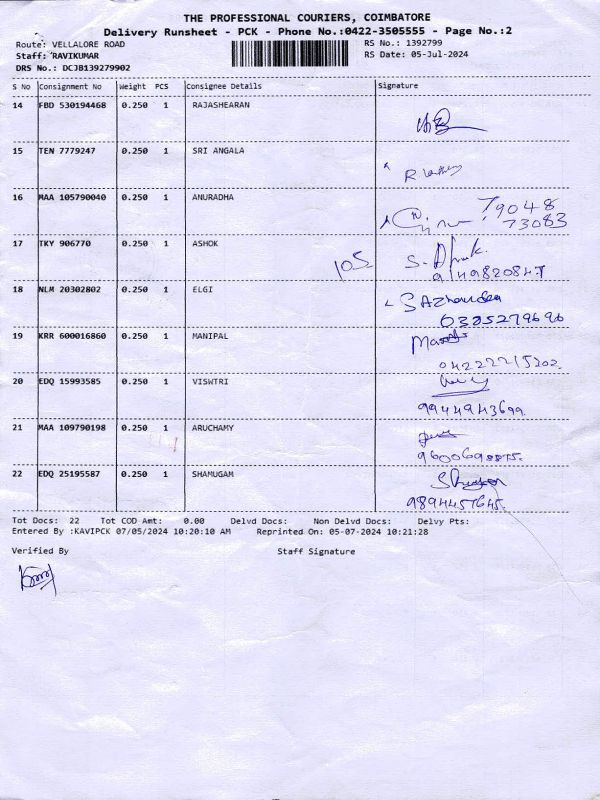 THE PROFESSIONAL COURIERS, COIMBATORE
Delivery Runsheet - PCK - Phone No.:0422-3505555 - Page No.:2
Route: VELLALORE ROAD RS No.: 1392799
Staff: RAVIKUMAR RS Date: 05-Jul-2024
DRS No.: DCJB139279902
S No Consignment No Weight PCS Consignee Details Signature
14 FBD 530194468 0.250 1 RAJASHEARAN
15 TEN 7779247 0.250 1 SRI ANGALA
R
16 MAA 105790040 0.250 1 ANURADHA
79048
73083
17 TKY 906770 0.250 1 ASHOK
105
S.
9149820847
18 NLM 20302802 0.250 1 ELGI
0305279696
19 KRR 600016860 0.250 1 MANIPAL
04222215202
20 EDQ 15993585 0.250 1 VISWTRI
9944943699
21 MAA 109790198 0.250 1 ARUCHAMY
22 EDQ 25195587 0.250 1 SHAMUGAM
9894457645
Tot Docs: 22 Tot COD Amt: 0.00 Delvd Docs: Non Delvd Docs: Delvy Pts:
Entered By :KAVIPCK 07/05/2024 10:20:10 AM Reprinted On: 05-07-2024 10:21:28
Verified By Staff Signature